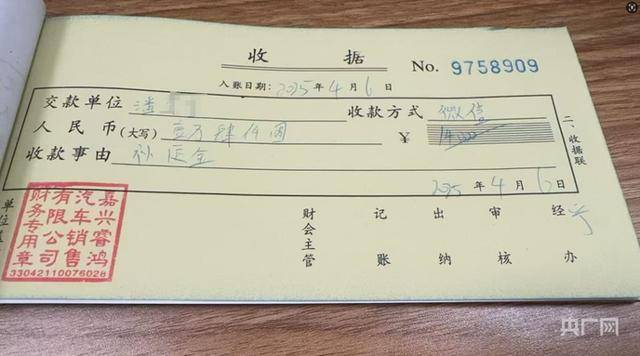 收 据
No. 9758909
入账日期: 2025 年 4 月 6 日
交款单位 潘 收款方式 微信
人民币(大写) 壹万肆仟圆 ¥ 14000
收款事由 补定金
2025 年 4 月 6 日
二、收据联
单位盖
财会主管 记账 出纳 审核 经办
嘉兴睿鸿
汽车销售
有限公司
财务专用章
33042110076028
央广网